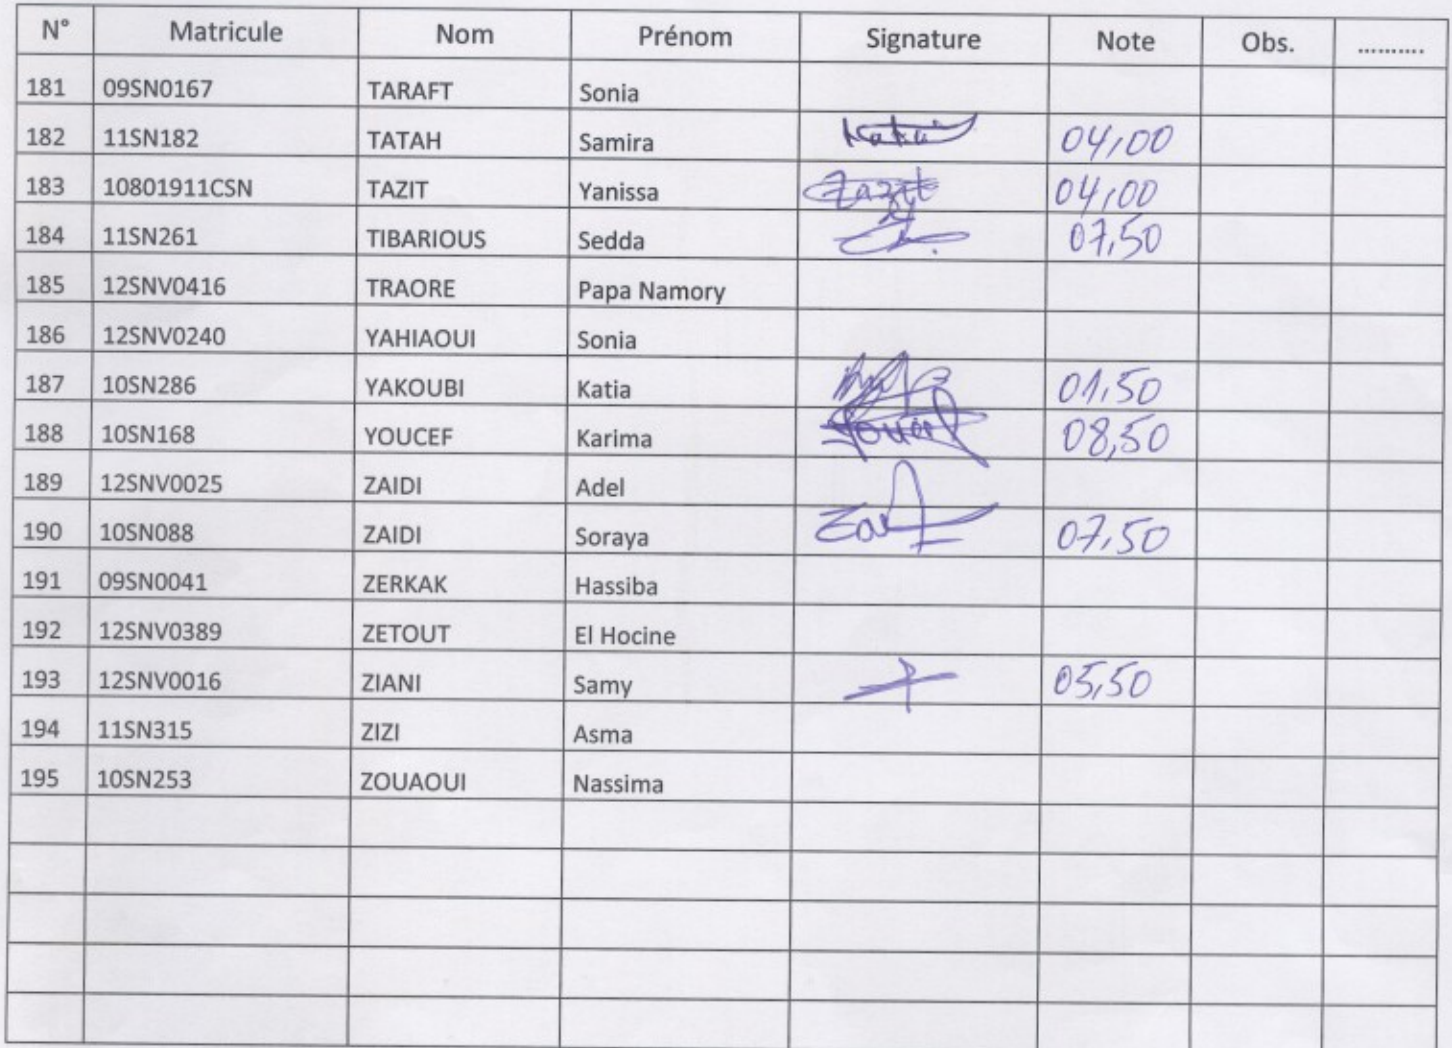 N° Matricule Nom Prénom Signature Note Obs. ..........
181 09SN0167 TARAFT Sonia
182 11SN182 TATAH Samira 04,00
183 10801911CSN TAZIT Yanissa Tazit 04,00
184 11SN261 TIBARIOUS Sedda 07,50
185 12SNV0416 TRAORE Papa Namory
186 12SNV0240 YAHIAOUI Sonia
187 10SN286 YAKOUBI Katia 01,50
188 10SN168 YOUCEF Karima 08,50
189 12SNV0025 ZAIDI Adel
190 10SN088 ZAIDI Soraya 07,50
191 09SN0041 ZERKAK Hassiba
192 12SNV0389 ZETOUT El Hocine
193 12SNV0016 ZIANI Samy 05,50
194 11SN315 ZIZI Asma
195 10SN253 ZOUAOUI Nassima